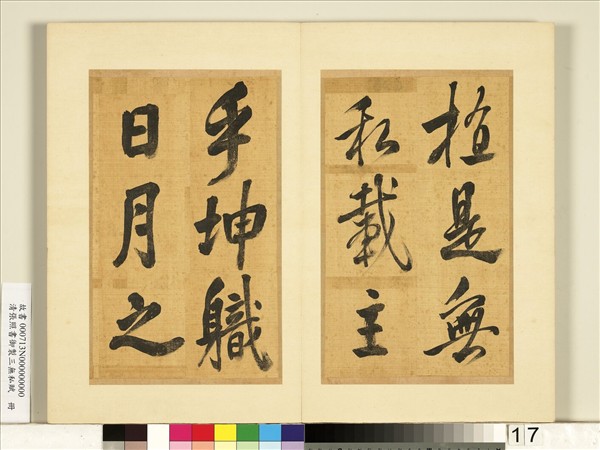 植是無
私載主
乎坤職
日月之
故書 000713N000000000
清張照書御製三無私賦 冊
17